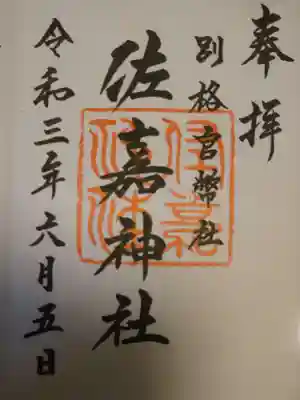 奉拝
別格官幣社
佐嘉神社
令和三年六月五日